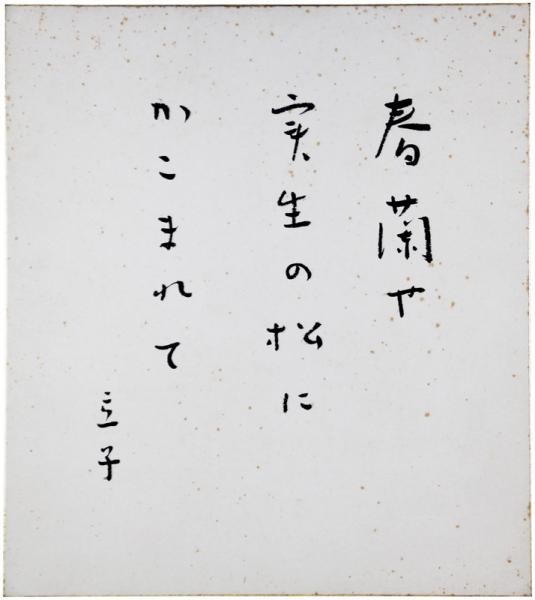 春蘭や
実生の松に
かこまれて
立子